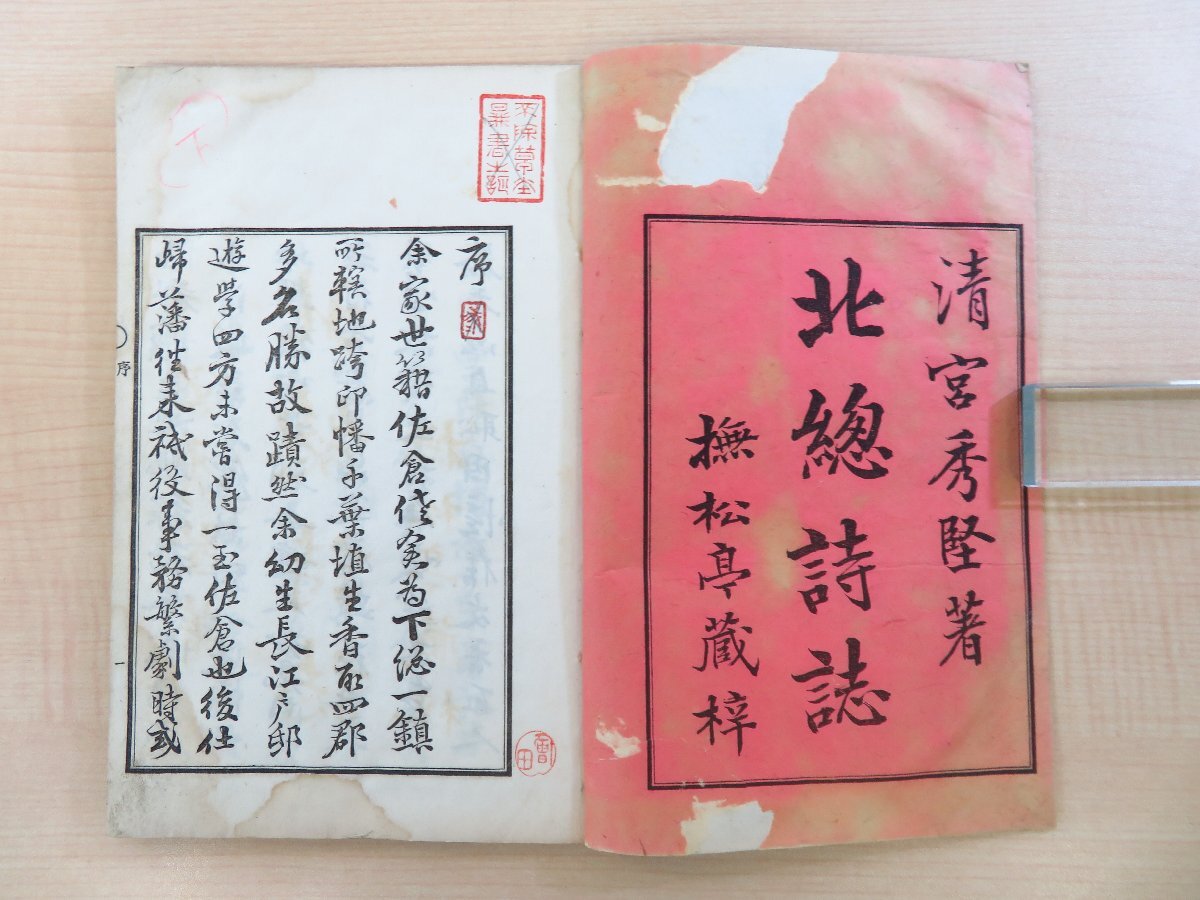 清宮秀堅著
北總詩誌
撫松亭藏梓
序
余家世籍佐倉佐倉為下総一鎮
所轄地跨印幡千葉埴生香取四郡
多名勝故蹟然余幼生長江戸邸
遊学四方未嘗得一至佐倉也後仕
歸藩往来祗役事務繁劇時或
序
一
下